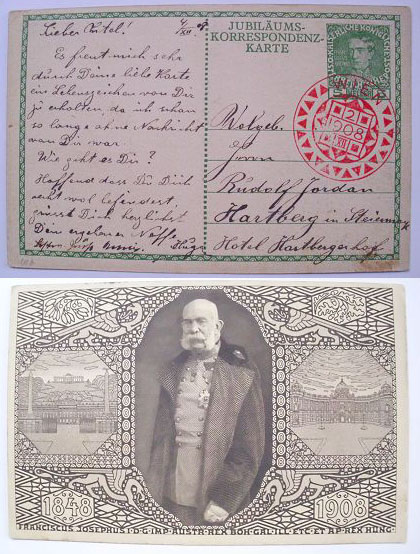 Lieber Onkel!
Es freut mich sehr
durch Deine liebe Karte
ein Lebenszeichen von Dir
zu erhalten, da ich schon
so lange ohne Nachricht
von Dir war.
Wie geht es Dir?
Hoffend dass Du Dich
recht wohl befindest,
grüsst Dich herzlichst
Dein ergebener Neffe
Hugo
JUBILÄUMS-
KORRESPONDENZ-
KARTE
2
1908
XII
Wolgeb.
Herrn
Rudolf Jordan
Hartberg in Steiermark
Hotel Hartbergerhof
1848
1908
FRANCISCUS JOSEPHUS I·D·G·IMP·AUSTR·REX BOH·GAL·ILL·ETC·ET AP·REX HUNG·